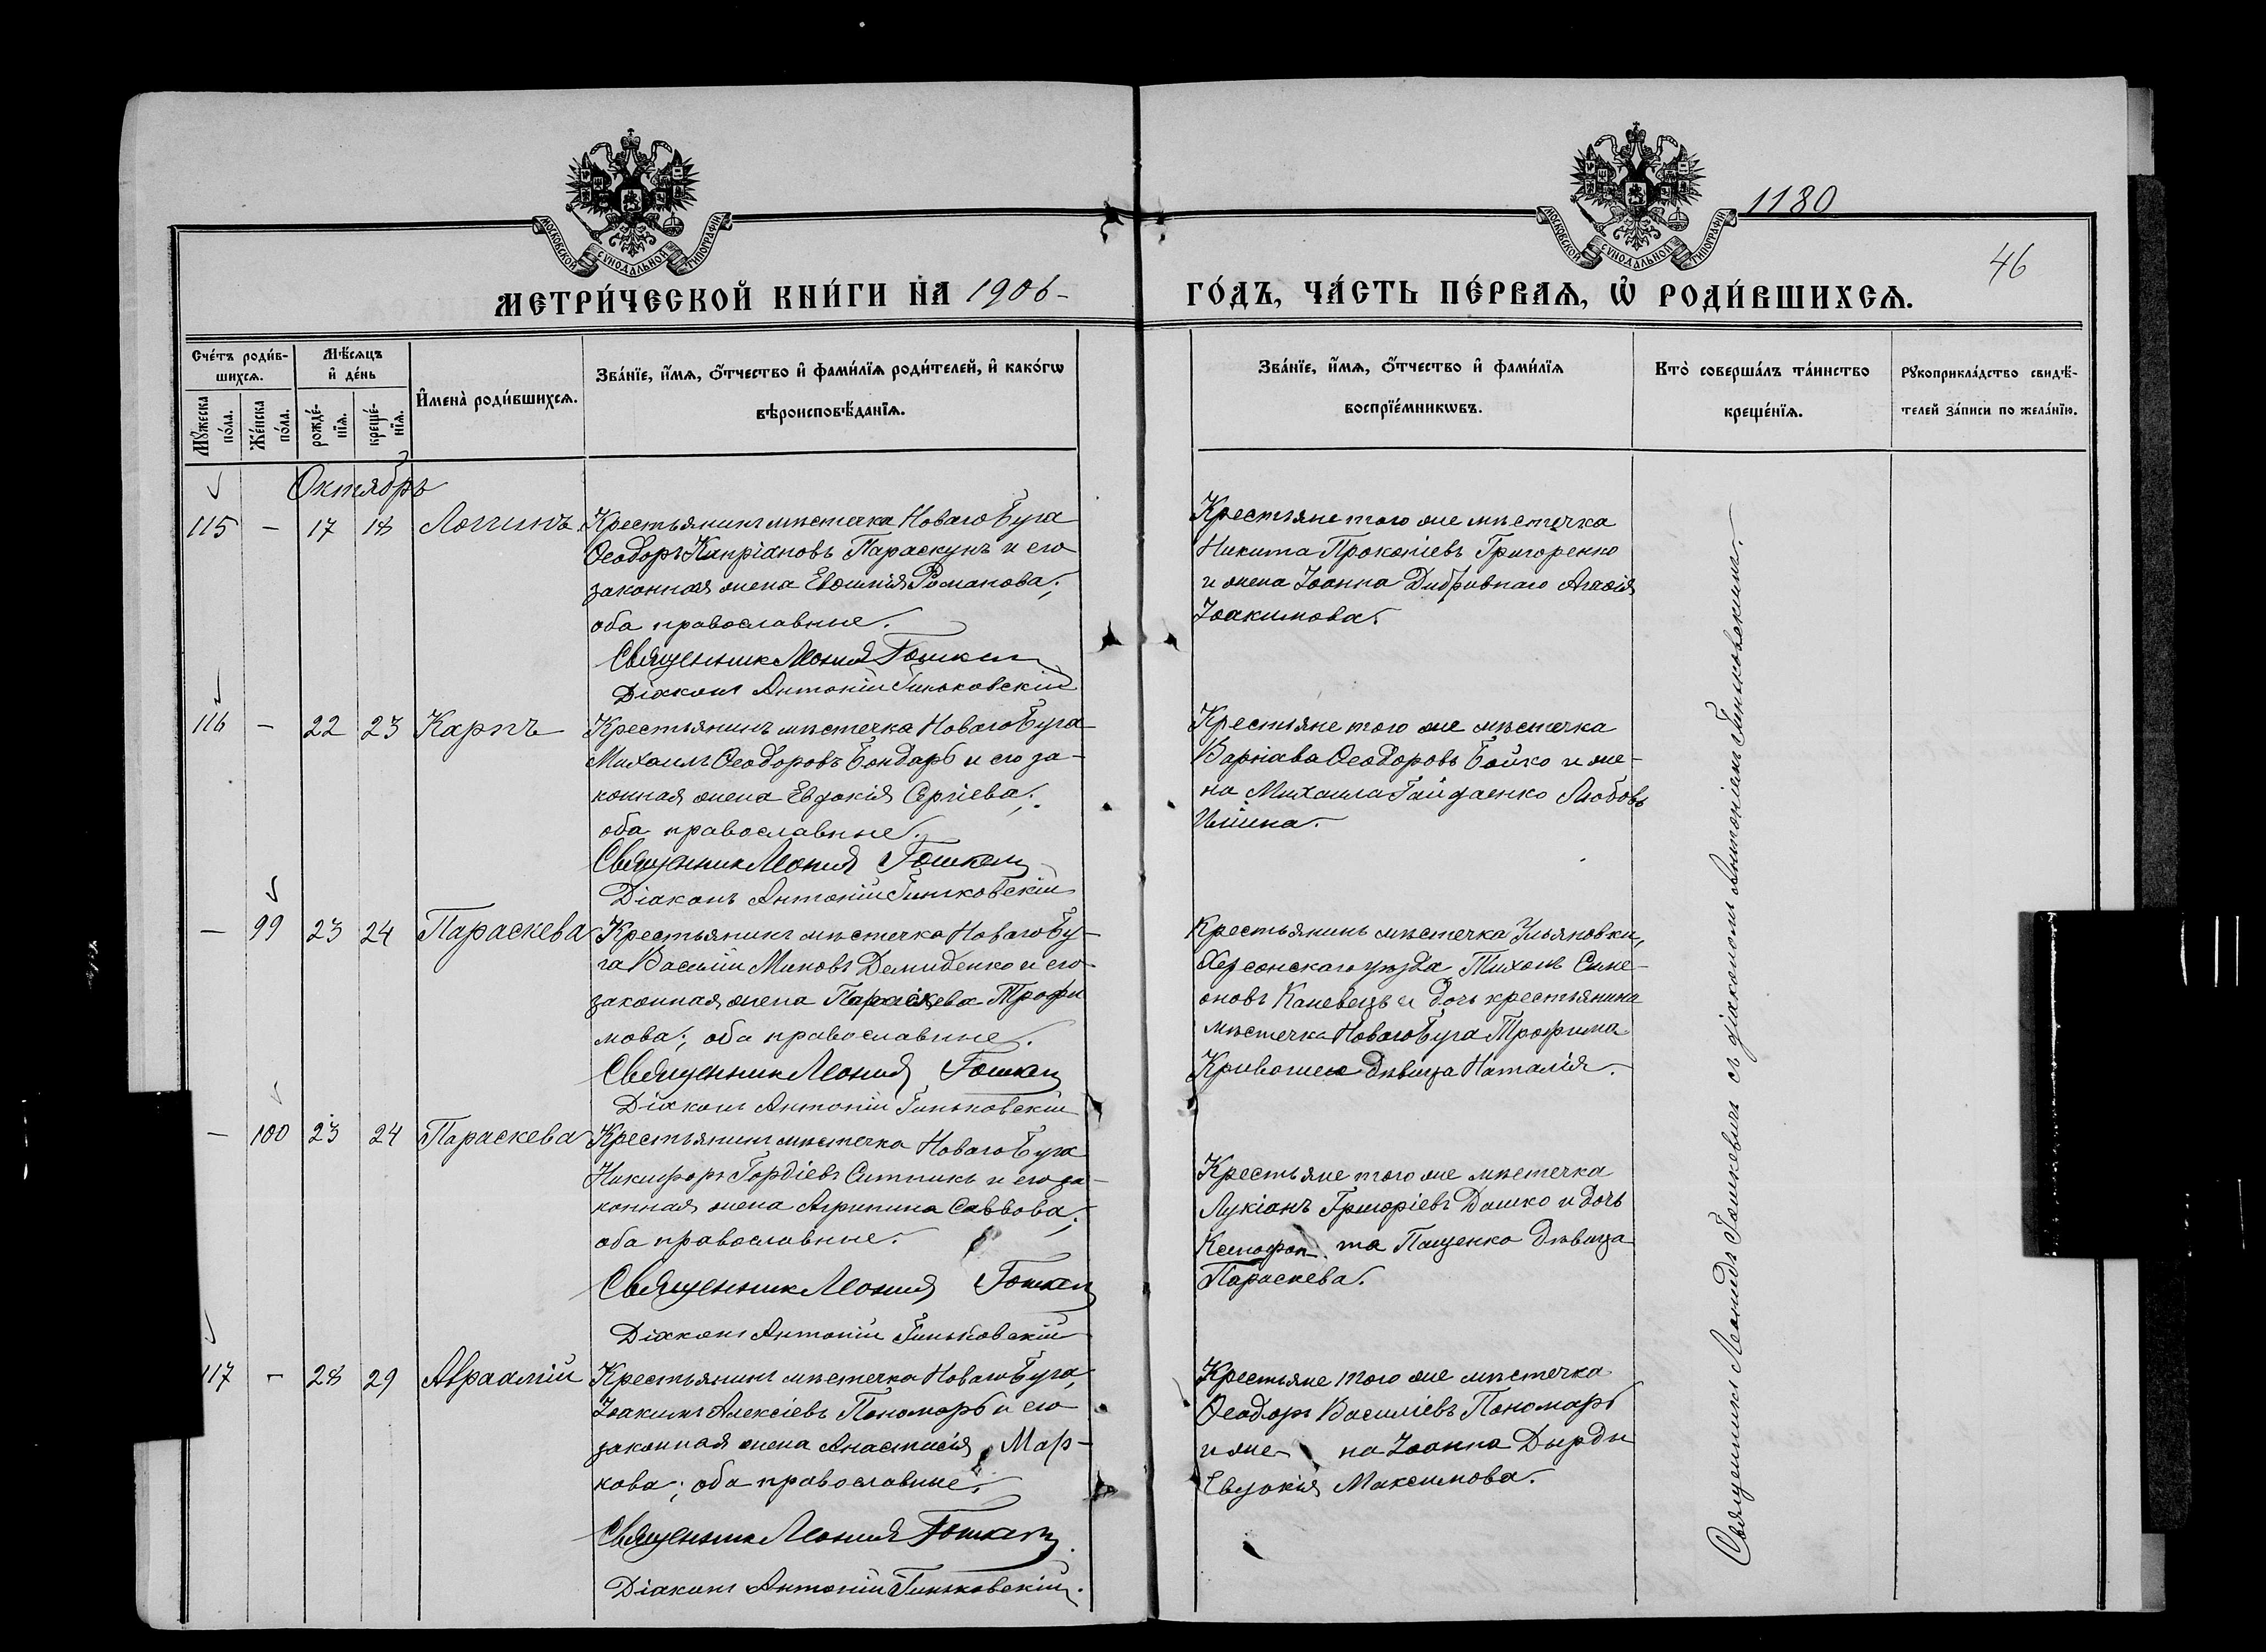 МОСКОВСКОЙ СУНОДАЛЬНОЙ ТИПОГРАФІИ
МОСКОВСКОЙ СУНОДАЛЬНОЙ ТИПОГРАФІИ
1180
46
МЕТРИ́ЧЕСКОЙ КНИ́ГИ НА 1906-
ГО́ДЪ, ЧА́СТЬ ПЕ́РВАѦ, Ѡ҆ РОДИ́ВШИХСѦ.
Сче́тъ роди́в-
шихсѧ.
Мѣ́сѧцъ
и҆ де́нь
Мꙋ́жеска по́ла.
Же́нска по́ла.
рожде́-
нїѧ.
креще́-
нїѧ.
И҆мена̀ роди́вшихсѧ.
Зва́нїе, и҆́мѧ, ѻ҆́тчество и҆ фами́лїѧ роди́телей, и҆ како́гѡ
вѣроисповѣ́данїѧ.
Зва́нїе, и҆́мѧ, ѻ҆́тчество и҆ фами́лїѧ
воспрїе́мникѡвъ.
Кто̀ соверша́лъ та́инство
креще́нїѧ.
Рꙋкоприкла́дство свидѣ́-
телей за́писи по жела́нїю.
Октябрь
115 — 17 18 Логгинъ
Крестьянинъ мѣстечка Новаго Буга
Ѳеодоръ Кипріановъ Параскунъ и его
законная жена Евѳимія Романова;
оба православные.
Священник Леонид Гошкеви
Діаконъ Антоній Гиньковскій
Крестьяне того же мѣстечка
Никита Прокопіевъ Григоренко
и жена Іоанна Дибривнаго Агаѳія
Іоакимова.
116 — 22 23 Карпъ
Крестьянинъ мѣстечка Новаго Буга
Михаилъ Ѳеодоровъ Бондарь и его за-
конная жена Евдокія Сергіева;
оба православные.
Священник Леонид Гошкеви
Діаконъ Антоній Гиньковскій
Крестьяне того же мѣстечка
Варнава Ѳеодоровъ Бойко и же-
на Михаила Гайдаенко Любовь
Ильина.
— 99 23 24 Параскева
Крестьянинъ мѣстечка Новаго Бу-
га Василій Миновъ Демиденко и его
законная жена Параскева Трофи
мова; оба православные.
Священник Леонид Гошкеви
Діаконъ Антоній Гиньковскій
Крестьянинъ мѣстечка Ульяновки,
Херсонскаго уѣзда Тихонъ Симе-
оновъ Каневецъ и дочь крестьянина
мѣстечка Новаго Буга Трофима
Кривошеи дѣвица Наталія.
— 100 23 24 Параскева
Крестьянинъ мѣстечка Новаго Буга
Никифоръ Гордіевъ Ситникъ и его за-
конная жена Агрипина Саввова;
оба православные.
Священник Леонид Гошкеви
Діаконъ Антоній Гиньковскій
Крестьяне того же мѣстечка
Лукіанъ Григоріевъ Дашко и дочь
Ксенофон та Пащенко дѣвица
Параскева.
117 — 28 29 Авраамій
Крестьянинъ мѣстечка Новаго Буга
Іоакимъ Алексіевъ Пономарь и его
законная жена Анастасія Мар-
кова; оба православные.
Священник Леонид Гошкеви
Діаконъ Антоній Гиньковскій.
Крестьяне того же мѣстечка
Ѳеодоръ Василіевъ Пономарь
и же- на Іоанна Дырды
Евдокія Максимова.
Священникъ Леонидъ Гошкевичъ съ діакономъ Антоніемъ Гиньковскимъ.